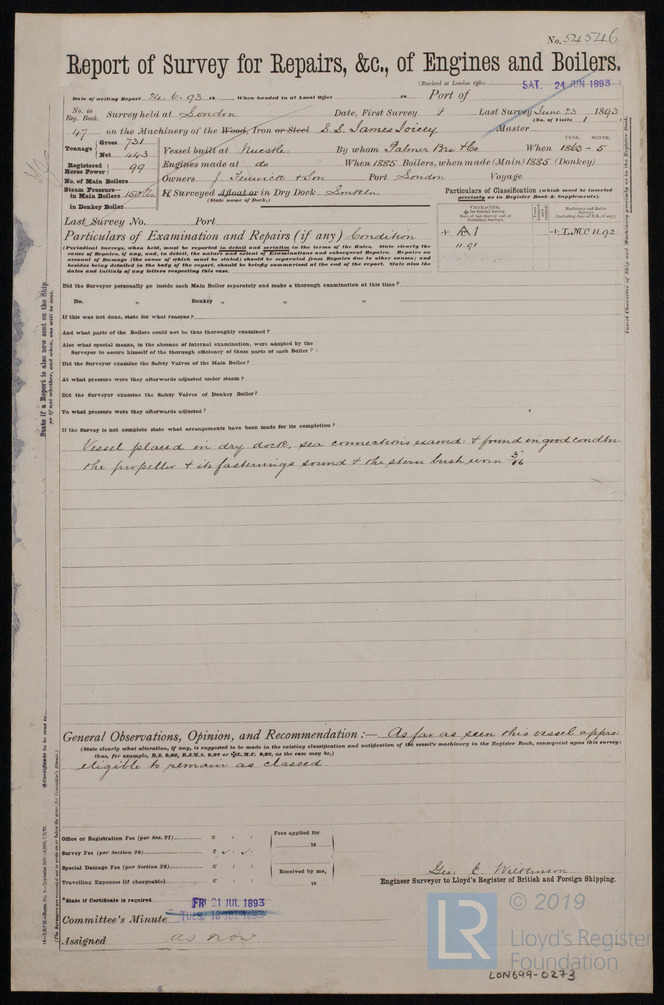 No. 54546
Report of Survey for Repairs, &c., of Engines and Boilers.
(Received at London Office SAT. 24 JUN 1893 )
Date of writing Report 24.6.93 18 When handed in at Local Office 18 Port of
No. in Reg. Book. Survey held at London Date, First Survey Last Survey June 23 1893
(No. of Visits 1 )
47 on the Machinery of the Wood, Iron or Steel S.S. James Joicey Master
Tonnage Gross 731
Net 443
Vessel built at Newcstle By whom Palmer Bros & Co When 1863 - 5
YEAR. MONTH.
Registered Horse Power 99
Engines made at do When 1885 Boilers, when made (Main) 1885 (Donkey)
No. of Main Boilers
Owners J Fenwick & Son Port London Voyage
Steam Pressure in Main Boilers 150 lbs
in Donkey Boiler
If Surveyed Afloat or in Dry Dock London
(State name of Dock.)
Particulars of Classification (which must be inserted precisely as in Register Book & Supplements).
CHARACTER.
Machinery and Boiler Surveys
+ A1
11.91
+ L.M.C 11.92
Last Survey No. Port
Particulars of Examination and Repairs (if any) Condition
(Periodical Surveys, when held, must be reported in detail and seriatim in the terms of the Rules. State clearly the
cause of Repairs, if any, and, in detail, the nature and extent of Examinations and subsequent Repairs. Repairs on
account of Damage (the cause of which must be stated) should be separated from Repairs due to other causes; and
besides being detailed in the body of the report, should be briefly summarised at the end of the report. State also the
dates and initials of any letters respecting this case.
Did the Surveyor personally go inside each Main Boiler separately and make a thorough examination at this time?
Do. " Donkey " " "
If this was not done, state for what reasons?
And what parts of the Boilers could not be thus thoroughly examined?
Also what special means, in the absence of internal examination, were adopted by the
Surveyor to assure himself of the thorough efficiency of those parts of each Boiler?
Did the Surveyor examine the Safety Valves of the Main Boiler?
At what pressure were they afterwards adjusted under steam?
Did the Surveyor examine the Safety Valves of Donkey Boiler?
To what pressure were they afterwards adjusted?
If the Survey is not complete state what arrangements have been made for its completion?
Vessel placed in dry dock, sea connections examd & found in good condtn
the propeller & its fastenings sound & the stern bush worn 3/16
State if a Report is also now sent on the Ship
or if not whether, and when, one will be sent.
Insert Character of Ship and Machinery precisely as in the Register Book.
General Observations, Opinion, and Recommendation :— As far as seen this vessel apprs
(State clearly what alteration, if any, is suggested to be made in the existing classification and notification of the vessel's machinery in the Register Book, consequent upon this survey;
thus, for example, B.S. 9,92, B.&M.S. 9,92 or L.M.C. 9,92, as the case may be.)
eligible to remain as classed
Certificate to be sent to
Office or Registration Fee (per Sec. 27) £ : :
Survey Fee (per Section 28) £ : :
Special Damage Fee (per Section 28) £ : :
Travelling Expenses (if chargeable) £ : :
Fees applied for
18
Received by me,
18
Geo. C. Wilkinson
Engineer Surveyor to Lloyd's Register of British and Foreign Shipping.
*State if Certificate is required
Committee's Minute FRI 21 JUL 1893
TUES. 18 JUL 1893
Assigned as now
© 2019
LR
Lloyd's Register
Foundation
LON699-0273